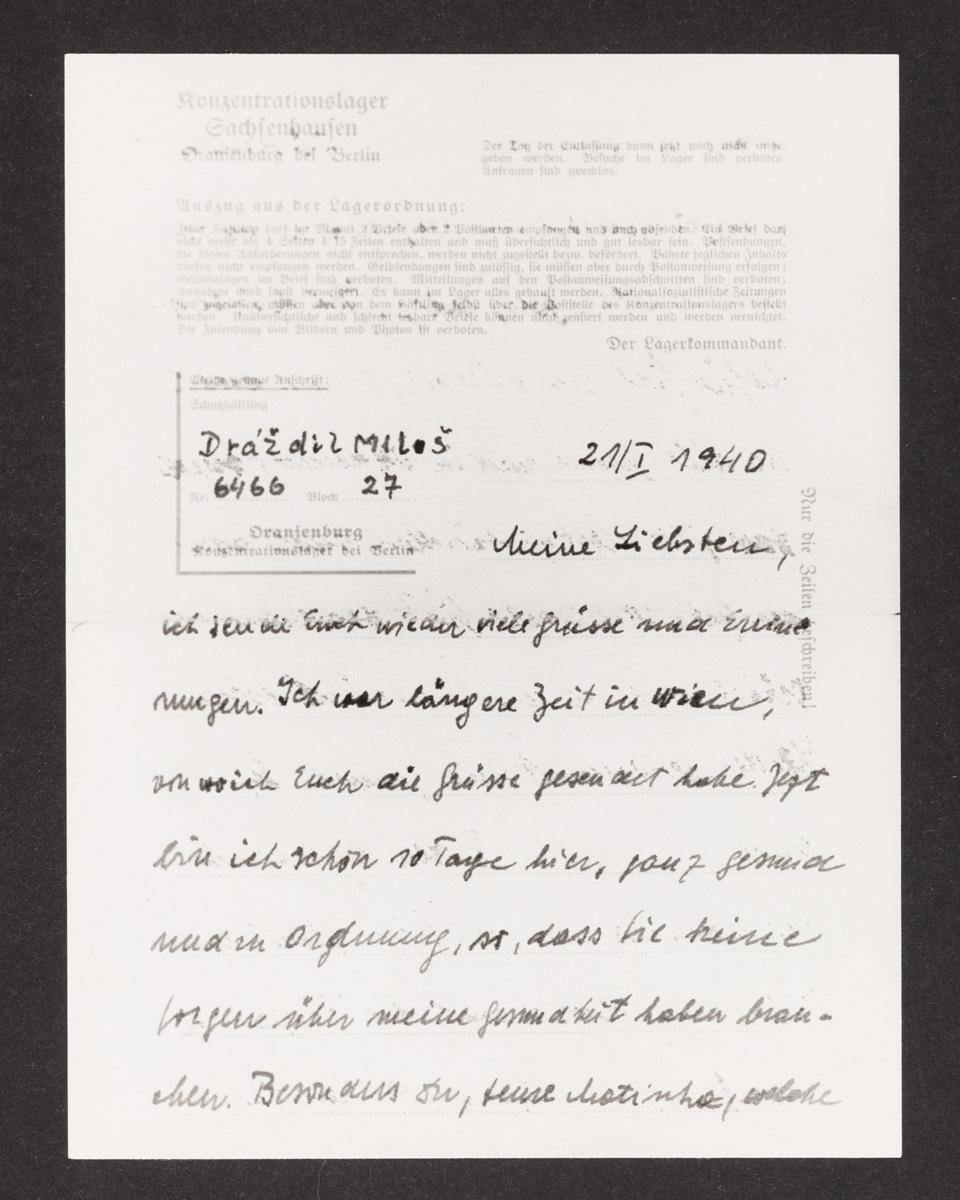 Konzentrationslager
Sachsenhausen
Oranienburg bei Berlin
Der Tag der Entlassung kann jetzt noch nicht ange-
geben werden. Besuche im Lager sind verboten.
Anfragen sind zwecklos.
Auszug aus der Lagerordnung:
Jeder Häftling darf im Monat 2 Briefe oder 2 Postkarten empfangen und auch absenden. Ein Brief darf
nicht mehr als 4 Seiten à 15 Zeilen enthalten und muß übersichtlich und gut lesbar sein. Postsendungen,
die diesen Anforderungen nicht entsprechen, werden nicht zugestellt bezw. befördert. Pakete jeglichen Inhalts
dürfen nicht empfangen werden. Geldsendungen sind zulässig, sie müssen aber durch Postanweisung erfolgen;
Geldeinlagen im Brief sind verboten. Mitteilungen auf den Postanweisungsabschnitten sind verboten;
Annahme wird sonst verweigert. Es kann im Lager alles gekauft werden. Nationalsozialistische Zeitungen
sind zugelassen, müssen aber von dem Häftling selbst über die Poststelle des Konzentrationslagers bestellt
werden. Unübersichtliche und schlecht lesbare Briefe können nicht zensiert werden und werden vernichtet.
Die Zusendung von Bildern und Photos ist verboten.
Der Lagerkommandant.
Meine genaue Anschrift:
Schutzhäftling
Dráždil Miloš
Nr. 6466 Block 27
Oranienburg
Konzentrationslager bei Berlin
21/I 1940
Nur die Zeilen beschreiben!
Meine Liebsten,
ich sende Euch wieder viele Grüsse und Erinne
rungen. Ich war längere Zeit in Wien,
von wo ich Euch die Grüsse gesendet habe. Jezt
bin ich schon 10 Tage hier, ganz gesund
und in Ordnung, so, dass Sie keine
Sorgen über meine Gesundheit haben brau-
chen. Besonders Du, teure Matinka, welche